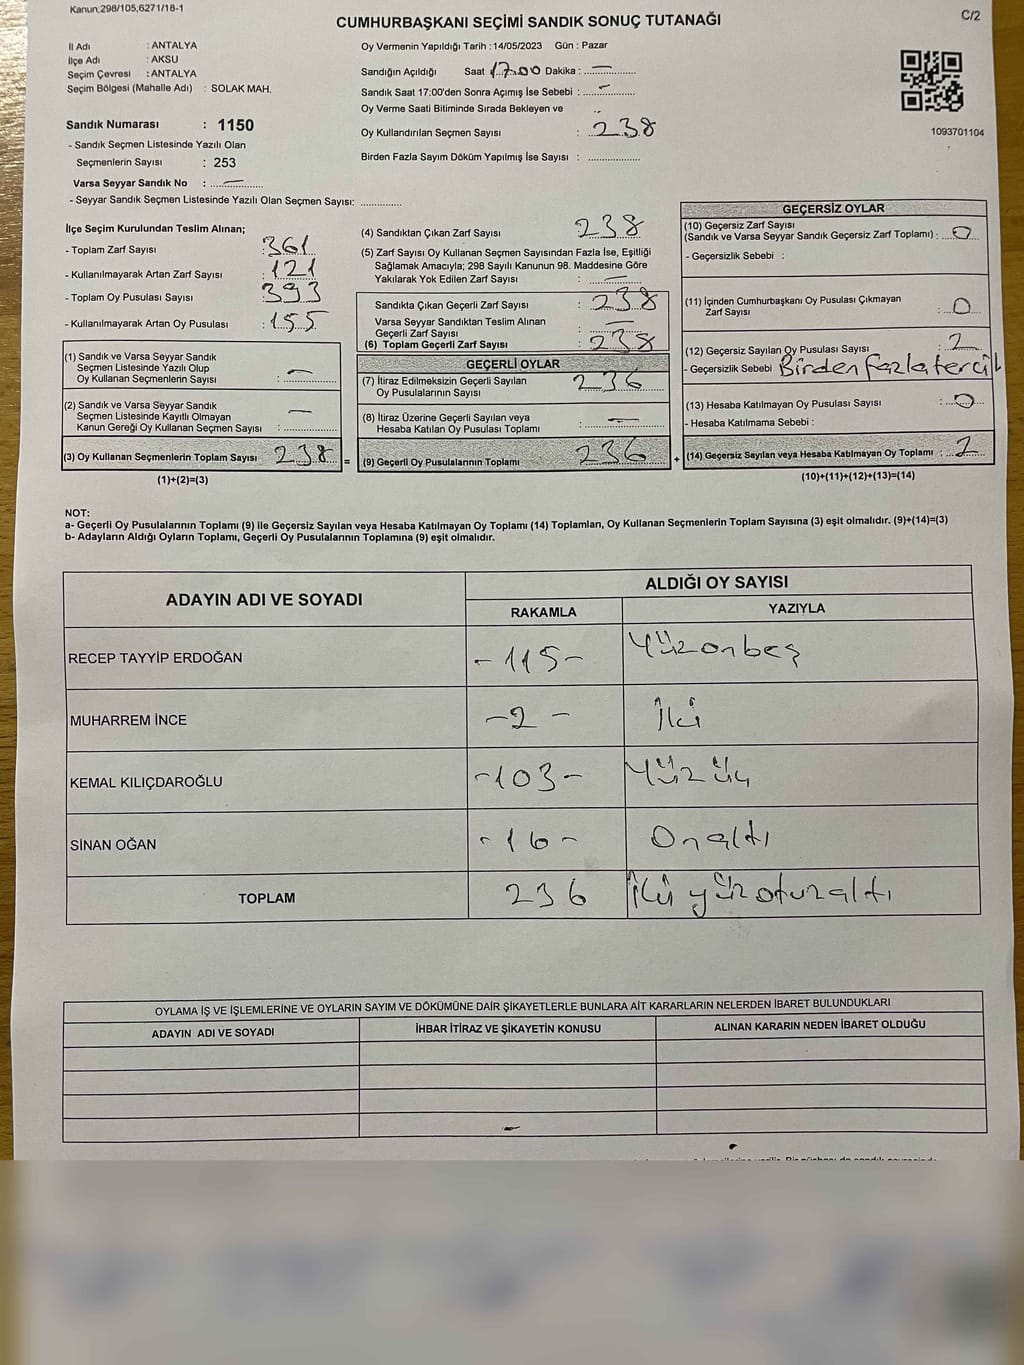 Kanun;298/105;6271/18-1
C/2
CUMHURBAŞKANI SEÇİMİ SANDIK SONUÇ TUTANAĞI
İl Adı : ANTALYA
İlçe Adı : AKSU
Seçim Çevresi : ANTALYA
Seçim Bölgesi (Mahalle Adı) : SOLAK MAH.
Sandık Numarası : 1150
- Sandık Seçmen Listesinde Yazılı Olan
Seçmenlerin Sayısı : 253
Varsa Seyyar Sandık No : —
- Seyyar Sandık Seçmen Listesinde Yazılı Olan Seçmen Sayısı: ..............
Oy Vermenin Yapıldığı Tarih :14/05/2023 Gün : Pazar
Sandığın Açıldığı Saat 17.00 Dakika : —
Sandık Saat 17:00'den Sonra Açımış İse Sebebi : —
Oy Verme Saati Bitiminde Sırada Bekleyen ve
Oy Kullandırılan Seçmen Sayısı : 238
Birden Fazla Sayım Döküm Yapılmış İse Sayısı : ..................
1093701104
İlçe Seçim Kurulundan Teslim Alınan;
- Toplam Zarf Sayısı : 361
- Kullanılmayarak Artan Zarf Sayısı : 121
- Toplam Oy Pusulası Sayısı : 393
- Kullanılmayarak Artan Oy Pusulası : 155
(1) Sandık ve Varsa Seyyar Sandık
Seçmen Listesinde Yazılı Olup
Oy Kullanan Seçmenlerin Sayısı : —
(2) Sandık ve Varsa Seyyar Sandık
Seçmen Listesinde Kayıtlı Olmayan
Kanun Gereği Oy Kullanan Seçmen Sayısı : —
(3) Oy Kullanan Seçmenlerin Toplam Sayısı : 238 =
(1)+(2)=(3)
(4) Sandıktan Çıkan Zarf Sayısı : 238
(5) Zarf Sayısı Oy Kullanan Seçmen Sayısından Fazla İse, Eşitliği
Sağlamak Amacıyla; 298 Sayılı Kanunun 98. Maddesine Göre
Yakılarak Yok Edilen Zarf Sayısı : —
Sandıkta Çıkan Geçerli Zarf Sayısı : 238
Varsa Seyyar Sandıktan Teslim Alınan
Geçerli Zarf Sayısı : —
(6) Toplam Geçerli Zarf Sayısı : 238
GEÇERLİ OYLAR
(7) İtiraz Edilmeksizin Geçerli Sayılan
Oy Pusulalarının Sayısı : 236
(8) İtiraz Üzerine Geçerli Sayılan veya
Hesaba Katılan Oy Pusulası Toplamı : —
(9) Geçerli Oy Pusulalarının Toplamı 236 +
GEÇERSİZ OYLAR
(10) Geçersiz Zarf Sayısı
(Sandık ve Varsa Seyyar Sandık Geçersiz Zarf Toplamı) : 0
- Geçersizlik Sebebi :
(11) İçinden Cumhurbaşkanı Oy Pusulası Çıkmayan
Zarf Sayısı : 0
(12) Geçersiz Sayılan Oy Pusulası Sayısı : 2
- Geçersizlik Sebebi Birden fazla tercih
(13) Hesaba Katılmayan Oy Pusulası Sayısı : 0
- Hesaba Katılmama Sebebi :
(14) Geçersiz Sayılan veya Hesaba Katılmayan Oy Toplamı : 2
(10)+(11)+(12)+(13)=(14)
NOT:
a- Geçerli Oy Pusulalarının Toplamı (9) ile Geçersiz Sayılan veya Hesaba Katılmayan Oy Toplamı (14) Toplamları, Oy Kullanan Seçmenlerin Toplam Sayısına (3) eşit olmalıdır. (9)+(14)=(3)
b- Adayların Aldığı Oyların Toplamı, Geçerli Oy Pusulalarının Toplamına (9) eşit olmalıdır.
ADAYIN ADI VE SOYADI
ALDIĞI OY SAYISI
RAKAMLA YAZIYLA
RECEP TAYYİP ERDOĞAN -115- Yüzonbeş
MUHARREM İNCE -2- İki
KEMAL KILIÇDAROĞLU -103- Yüz üç
SİNAN OĞAN -16- Onaltı
TOPLAM 236 İki yüz otuzaltı
OYLAMA İŞ VE İŞLEMLERİNE VE OYLARIN SAYIM VE DÖKÜMÜNE DAİR ŞİKAYETLERLE BUNLARA AİT KARARLARIN NELERDEN İBARET BULUNDUKLARI
ADAYIN ADI VE SOYADI İHBAR İTİRAZ VE ŞİKAYETİN KONUSU ALINAN KARARIN NEDEN İBARET OLDUĞU